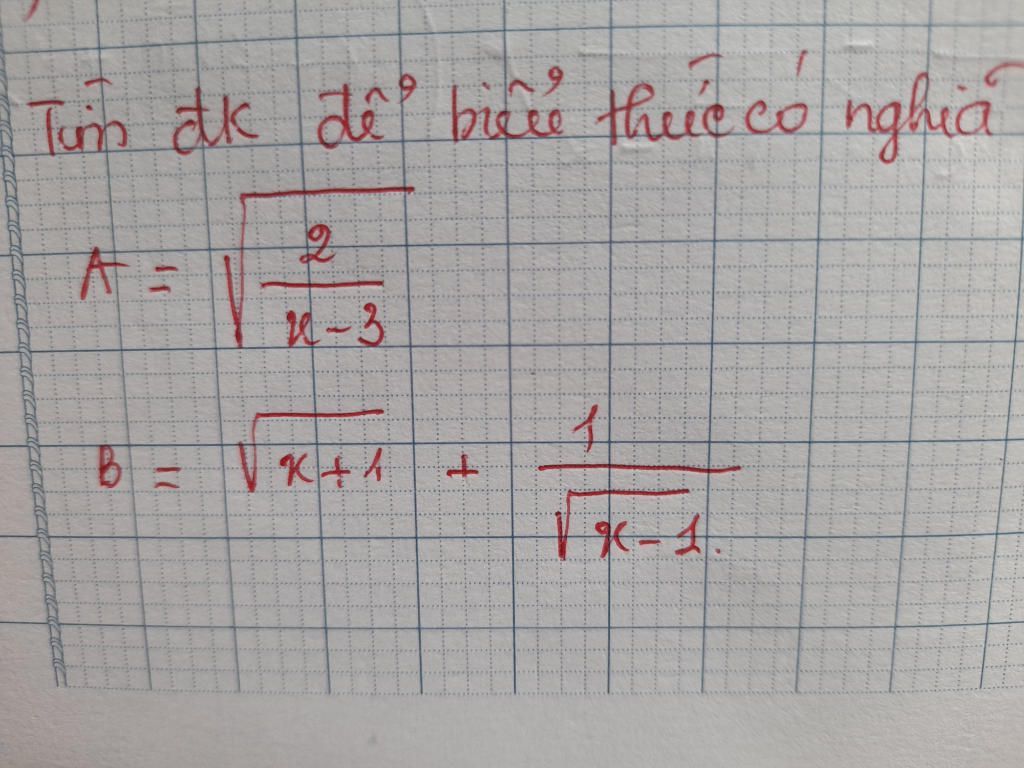 Tìm đk để biểu thức có nghĩa
A = √(2/(x-3))
B = √(x+1) + 1/√(x-1).